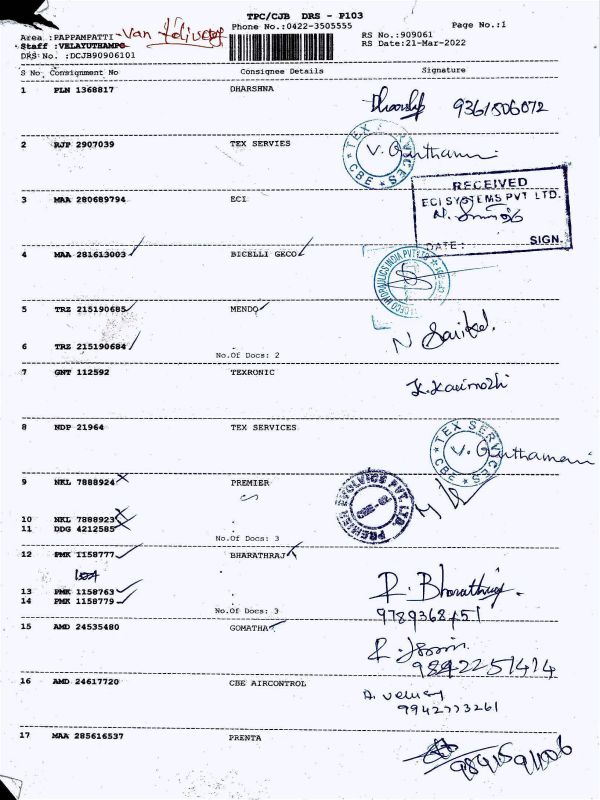 TPC/CJB DRS - P103
Phone No.:0422-3505555
Page No.:1
Area :PAPPAMPATTI - Van delivery
Staff :VELAYUTHAMPG
RS No.:909061
DRS No. :DCJB90906101
RS Date:21-Mar-2022
S No Consignment No Consignee Details Signature
1 PLN 1368817 DHARSHNA
9361506072
2 RJP 2907039 TEX SERVIES
TEX SE CBE
V. Ganthamani
3 MAA 280689794 ECI
RECEIVED
ECI SYSTEMS PVT LTD.
DATE: SIGN.
4 MAA 281613003 BICELLI GECO
HYDRAULICS INDIA PVT LTD
5 TRZ 215190685 MENDO
6 TRZ 215190684
No.Of Docs: 2
7 GNT 112592 TEXRONIC
K. Kavimozhi
8 NDP 21964 TEX SERVICES
TEX SERVICES CBE
V. Ganthamani
9 NKL 7888924 PREMIER
PREMIER EVOLVICS PVT. LTD.
10 NKL 7888923
11 DDG 4212585
No.Of Docs: 3
12 PMK 1158777 BHARATHRAJ
R. Bharathiraj
13 PMK 1158763
14 PMK 1158779
No.Of Docs: 3
9789368451
15 AMD 24535480 GOMATHA
9892251414
16 AMD 24617720 CBE AIRCONTROL
9942773261
17 MAA 285616537 PRENTA